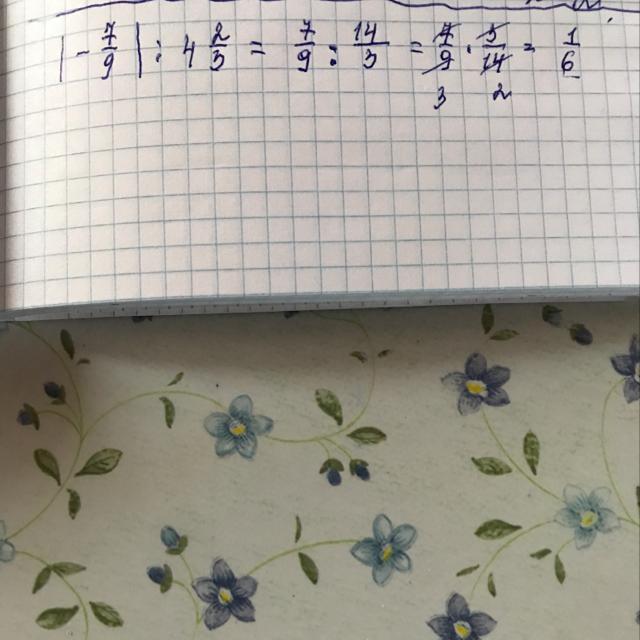 |- 7/9| : 4 2/3 = 7/9 : 14/3 = 7/9 · 3/14 = 1/6
3 2